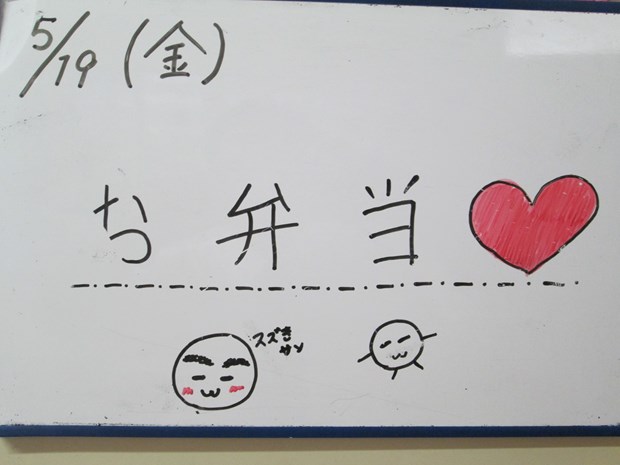 5/19(金)
お弁当
スズき
サン